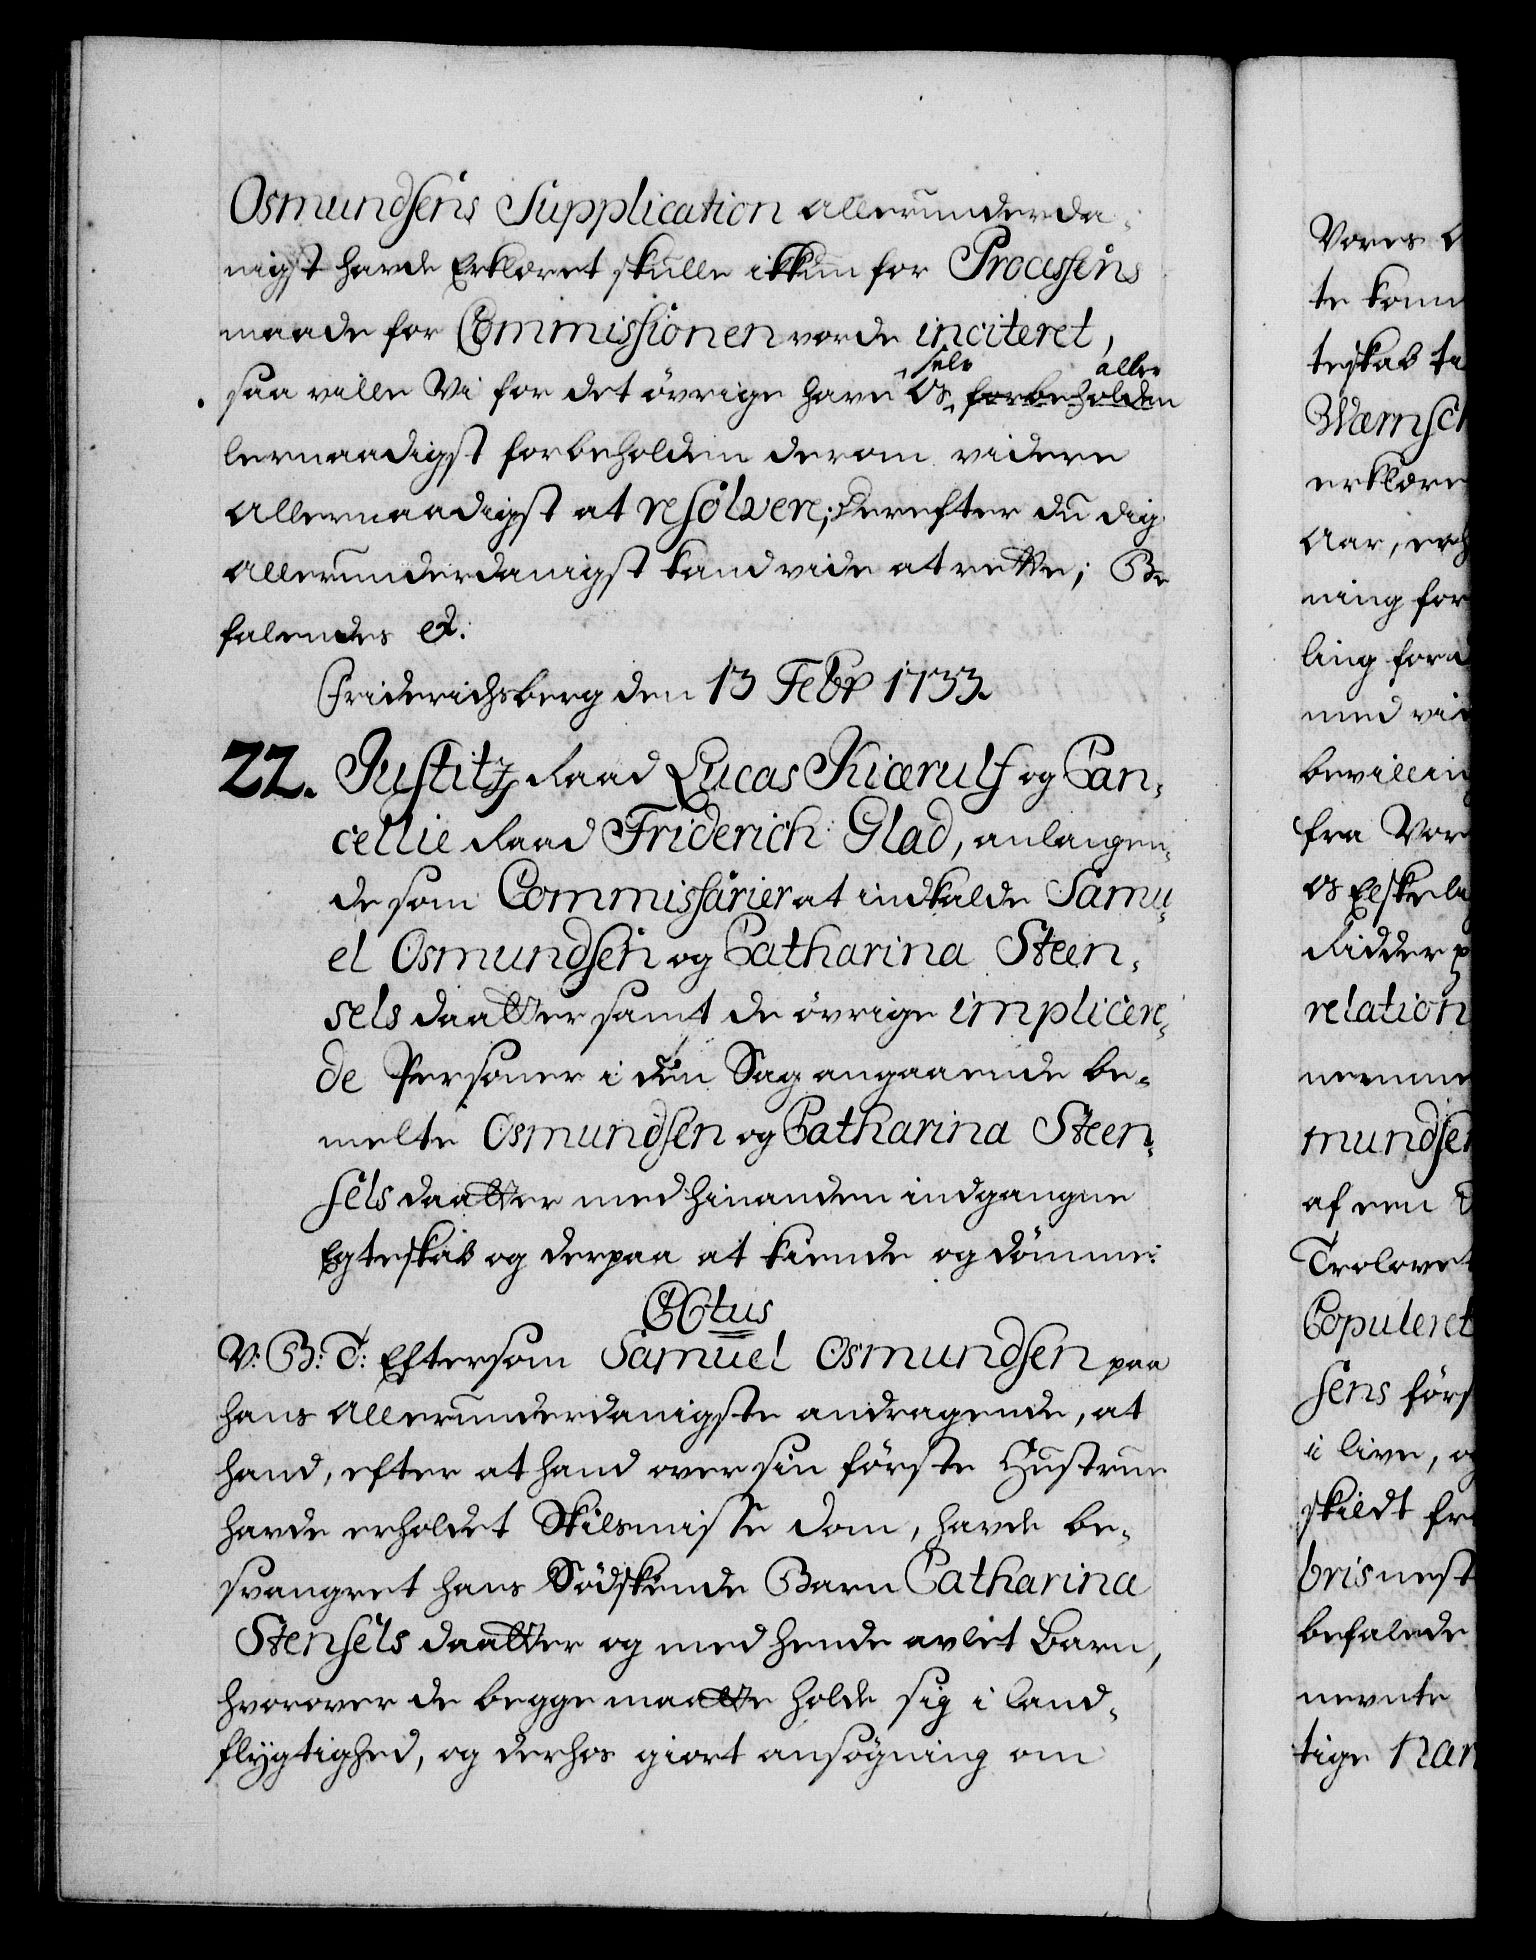 Osmundsens Supplication allerunderda-
nigst havde Erklæret skulle ikkun for Processens
maade for Commissionen vorde inciteret,
saa ville Vi for det övrige have Os selv forbeholden aller
lernaadigst forbeholden derom videre
Allernaadigst at resolvere; Derefter du dig
allerunderdanigst kand vide at rette; Be
falendes etc.
Friderichsberg den 13 Febr 1733.
22. Justitz Raad Lucas Kiærulf og Can-
cellie Raad Friderich Glad, anlangen-
de som Commissarier at indkalde Samu-
el Osmundsen og Catharina Steen-
sels daatter samt de övrige implicere-
de Personer i den Sag angaaende be-
melte Osmundsen og Catharina Steen-
sels daatter med hinanden indgangne
Egteskab og derpaa at kiende og dömme:
V: G: T: Eftersom Samuel Osmundsen paa
hans Allerunderdanigste andragende, at
hand, efter at hand over sin förste Hustrue
havde erholdet Skilsmisse dom, havde be-
svangret hans Södskende Barn Catharina
Stensels daatter og med hende avlet Barn,
hvorover de begge maatte holde sig i land-
flygtighed, og derhos giort ansögning om
Vores
te kom
teskab
Wærnsch
erklære
Aar,
ning for
ling
med
bevilling
fra Vor
Os Elskelig
Ridder
relation
nemme
mundsen
af een
Trolovet
Copuleret
sens förs
i live, og
skildt fra
bris nest
befalede
nevnte
tige